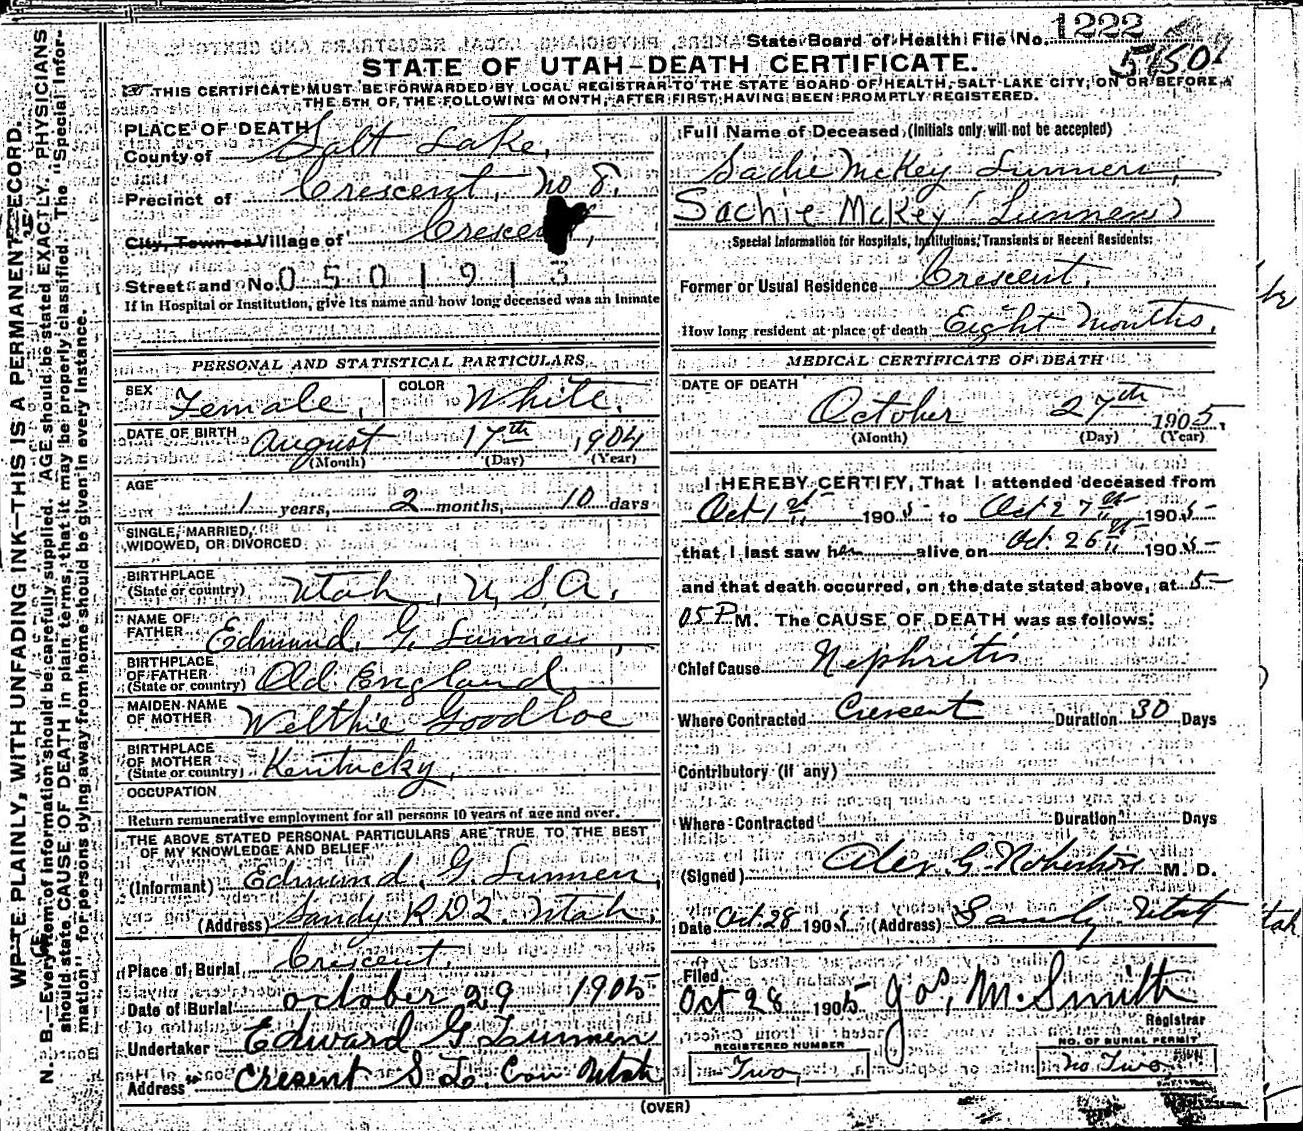 State Board of Health File No. 1222
5150
STATE OF UTAH—DEATH CERTIFICATE.
THIS CERTIFICATE MUST BE FORWARDED BY LOCAL REGISTRAR TO THE STATE BOARD OF HEALTH, SALT LAKE CITY, ON OR BEFORE
THE 5TH OF THE FOLLOWING MONTH, AFTER FIRST HAVING BEEN PROMPTLY REGISTERED.
PLACE OF DEATH
County of Salt Lake,
Precinct of Crescent, No 8.
City, Town or Village of Crescent,
Street and No. 0501913
If in Hospital or Institution, give its name and how long deceased was an Inmate
PERSONAL AND STATISTICAL PARTICULARS
SEX Female, COLOR White.
DATE OF BIRTH August 17th, 1904
(Month) (Day) (Year)
AGE
1 years, 2 months, 10 days
SINGLE, MARRIED,
WIDOWED, OR DIVORCED
BIRTHPLACE
(State or country) Utah, U.S.A.
NAME OF
FATHER Edmund. G. Lunnen,
BIRTHPLACE
OF FATHER
(State or country) Old England
MAIDEN NAME
OF MOTHER Welthie Goodloe
BIRTHPLACE
OF MOTHER
(State or country) Kentucky.
OCCUPATION
Return remunerative employment for all persons 10 years of age and over.
THE ABOVE STATED PERSONAL PARTICULARS ARE TRUE TO THE BEST
OF MY KNOWLEDGE AND BELIEF
(Informant) Edmund. G. Lunnen,
(Address) Sandy R D 2. Utah.
Place of Burial Crescent.
Date of Burial october 29 1905
Undertaker Edward G Lunnen
Address Cresent S L. Con Utah
Full Name of Deceased (Initials only will not be accepted)
Sadie McKey Lunnen,
Sachie McKey (Lunnen)
Special Information for Hospitals, Institutions, Transients or Recent Residents:
Former or Usual Residence Crescent.
How long resident at place of death Eight Months.
MEDICAL CERTIFICATE OF DEATH
DATE OF DEATH
October 27th 1905,
(Month) (Day) (Year)
I HEREBY CERTIFY, That I attended deceased from
Oct 1st 1905 to Oct 27th 1905
that I last saw her alive on Oct. 26th 1905
and that death occurred, on the date stated above, at 5-
05 P. M. The CAUSE OF DEATH was as follows:
Chief Cause Nephritis
Where Contracted Crescent Duration 30 Days
Contributory (If any)
Where Contracted Duration Days
(Signed) Alex. G. Robertson M. D.
Date Oct. 28 1905 (Address) Sandy Utah
Filed
Oct 28 1905 Jos, M. Smith
Registrar
REGISTERED NUMBER
Two,
NO. OF BURIAL PERMIT
No Two
(OVER)
PLAINLY, WITH UNFADING INK—THIS IS A PERMANENT RECORD.
N. B.—Every item of information should be carefully supplied. AGE should be stated EXACTLY. PHYSICIANS
should state CAUSE OF DEATH in plain terms, that it may be properly classified. The "Special Infor-
mation" for persons dying away from home should be given in every instance.